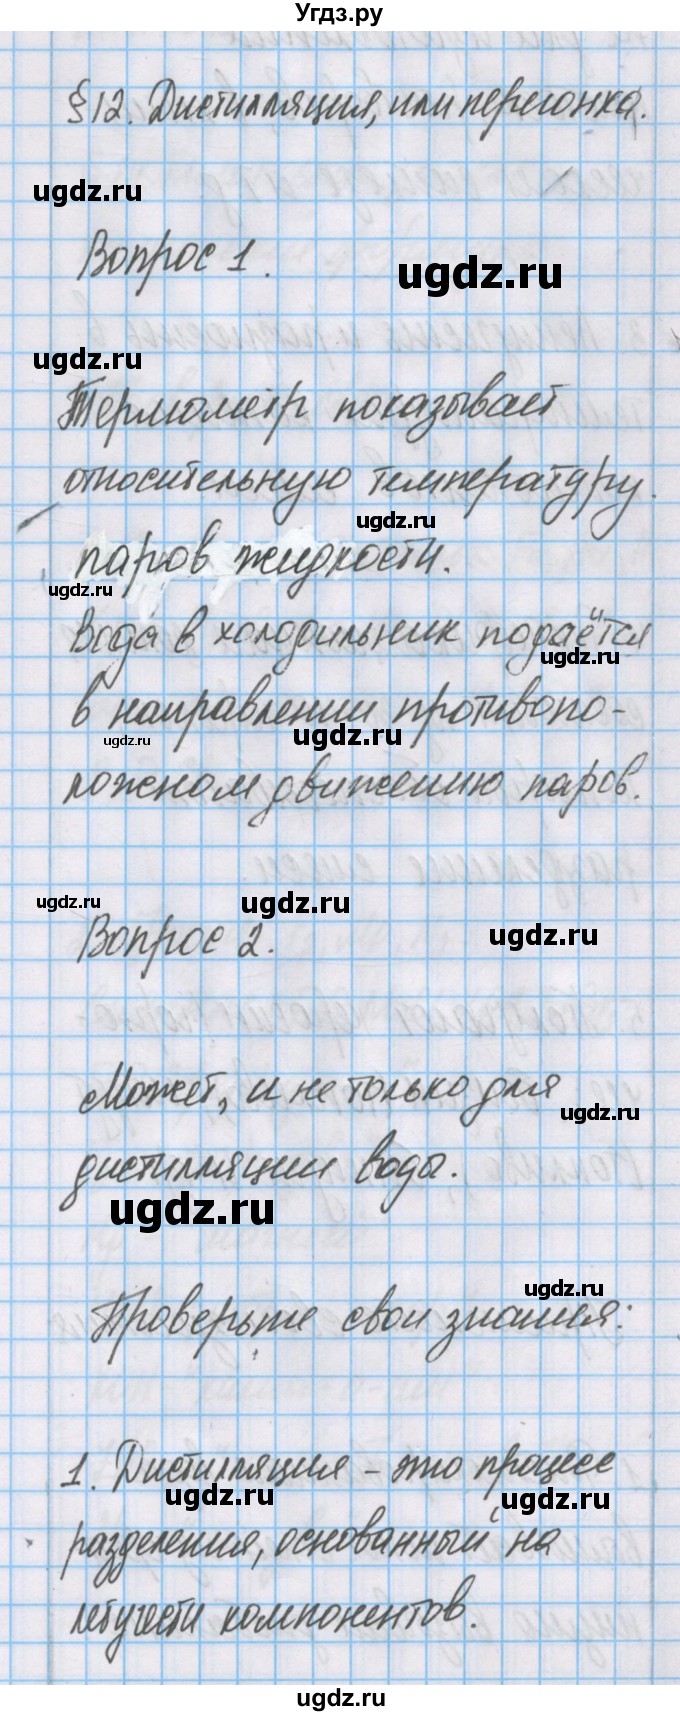 Угдз.ру
§12. Дистилляция, или перегонка.
ugdz.ru
Вопрос 1.
ugdz.ru
ugdz.ru
Термометр показывает
относительную температуру.
ugdz.ru
паров жидкости.
ugdz.ru
Вода в холодильник подаётся
ugdz.ru
в направлении противопо-
ugdz.ru
ugdz.ru
ложном движению паров.
ugdz.ru
ugdz.ru
Вопрос 2.
ugdz.ru
Может, и не только для
ugdz.ru
дистилляции воды.
ugdz.ru
ugdz.ru
Проверьте свои знания:
1. Дистилляция - это процесс
ugdz.ru
ugdz.ru
разделения, основанный на
летучести компонентов.
ugdz.ru